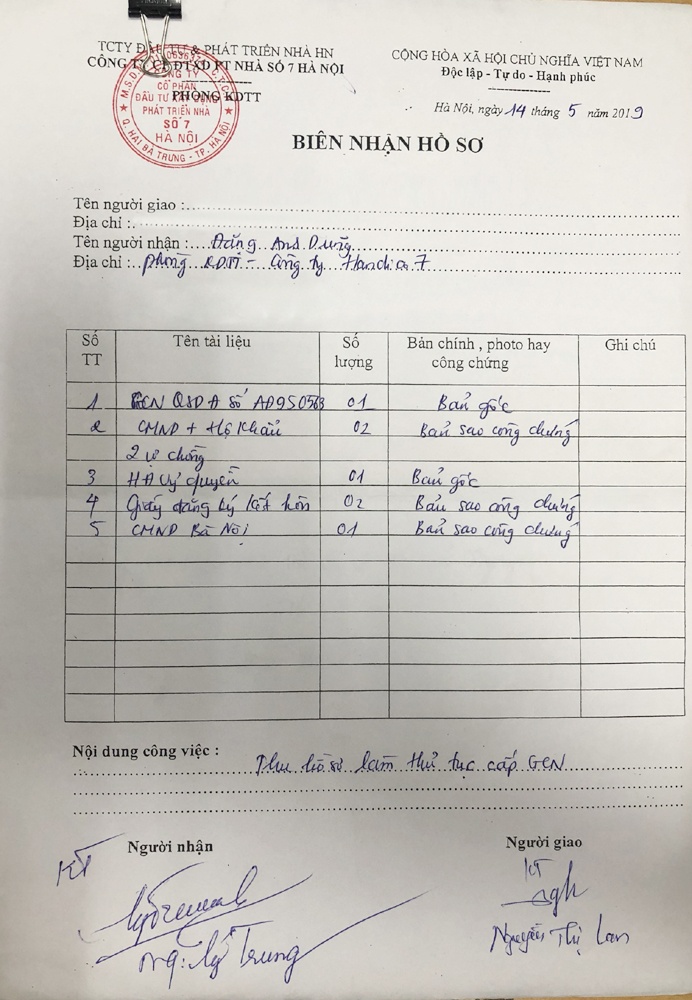 TCTY ĐẦU TƯ & PHÁT TRIỂN NHÀ HN
CÔNG TY CP ĐTXD PT NHÀ SỐ 7 HÀ NỘI
PHÒNG KDTT
CÔNG TY
CỔ PHẦN
ĐẦU TƯ XÂY DỰNG
PHÁT TRIỂN NHÀ
SỐ 7
HÀ NỘI
Q. HAI BÀ TRƯNG - TP. HÀ NỘI
CỘNG HÒA XÃ HỘI CHỦ NGHĨA VIỆT NAM
Độc lập - Tự do - Hạnh phúc
Hà Nội, ngày 14 tháng 5 năm 2019
BIÊN NHẬN HỒ SƠ
Tên người giao :
Địa chỉ :
Tên người nhận : Đặng Anh Dũng
Địa chỉ : phòng KDTT - Công ty Handico 7
Số TT Tên tài liệu Số lượng Bản chính , photo hay công chứng Ghi chú
1 GCN QSDĐ số AD950563 01 Bản gốc
2 CMND + Hộ khẩu 02 Bản sao công chứng
2 vợ chồng
3 HĐ uỷ quyền 01 Bản gốc
4 Giấy đăng ký kết hôn 02 Bản sao công chứng
5 CMND Bà Nội 01 Bản sao công chứng
Nội dung công việc : Thu hồ sơ làm thủ tục cấp GCN
Người nhận Người giao
KT KT
Trung Nguyễn Thị Lan